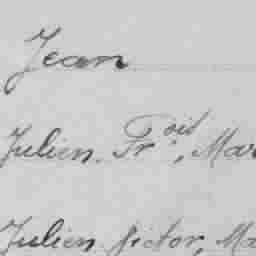 Jean
Julien. Fr.ois, Mar
Julien Victor, Ma